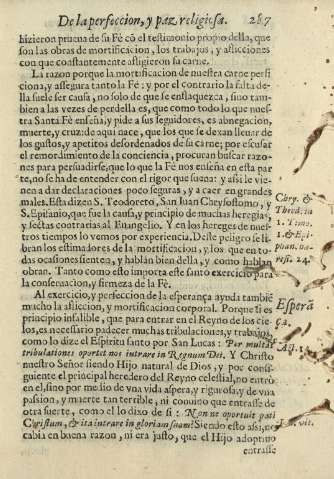 De la perfeccion, y paz religiosa. 267
hizieron prueua de su Fè cõ el testimonio propio della, que
son las obras de mortificacion, los trabajos, y aflicciones
con que constantemente afligieron su carne.
La razon porque la mortificacion de nuestra carne perfi
ciona, y assegura tanto la Fè: y por el contrario la falta de-
lla suele ser causa, no solo de que se enflaquezca, sino tam
bien a las vezes de perdella es, que como todo lo que nues-
tra Santa Fè enseña, y pide a sus seguidores, es abnegacion,
muerte, y cruz: de aqui nace, que los que se dexan lleuar de
los gustos, y apetitos desordenados de su carne; por escusar
el remordimiento de la conciencia, procuran buscar razo-
nes para persuadirse, que lo que la Fè nos enseña en esta par
te, no se ha de entender con el rigor que suena: y assi le vie-
nen a dar declaraciones poco seguras, y a caer en grandes
males. Esta dizen S. Teodoreto, San Iuan Chrysostomo, y
S. Epifanio, que fue la causa, y principio de muchas heregias,
y sectas contrarias al Euangelio. Y en los hereges de nues-
tros tiempos lo vemos por experiencia. Deste peligro se li-
bran los estimadores de la mortificacion, y los que en to-
das ocasiones sienten, y hablan bien della, y como hablan
obran. Tanto como esto importa este santo exercicio para
la conseruacion, y firmeza de la Fè.
Al exercicio, y perfeccion de la esperança ayuda tambiẽ
mucho la afliccion, y mortificacion corporal. Porque si es
principio infalible, que para entrar en el Reyno de los cie-
los, es necessario padecer muchas tribulaciones, y trabajos,
como lo dize el Espiritu santo por San Lucas: Per multas
tribulationes oportet nos intrare in Regnum Dei. Y Christo
nuestro Señor siendo Hijo natural de Dios, y por consi-
guiente el principal heredero del Reyno celestial, no entrò
en el, sino por medio de vna vida aspera, y rigurosa, y de vna
passion, y muerte tan terrible, ni conuino que entrasse de
otra suerte, como el lo dixo de si: Non ne oportuit pati
Christum, & ita intrare in gloriam suam? Siendo esto assi, no
cabia en buena razon, ni era justo, que el Hijo adoptiuo
entrasse
Chry. &
Theod. in
1. Timo.
1. & Epi-
phan. ha-
resi. 24.
Esperã
ça.
Act. 14.